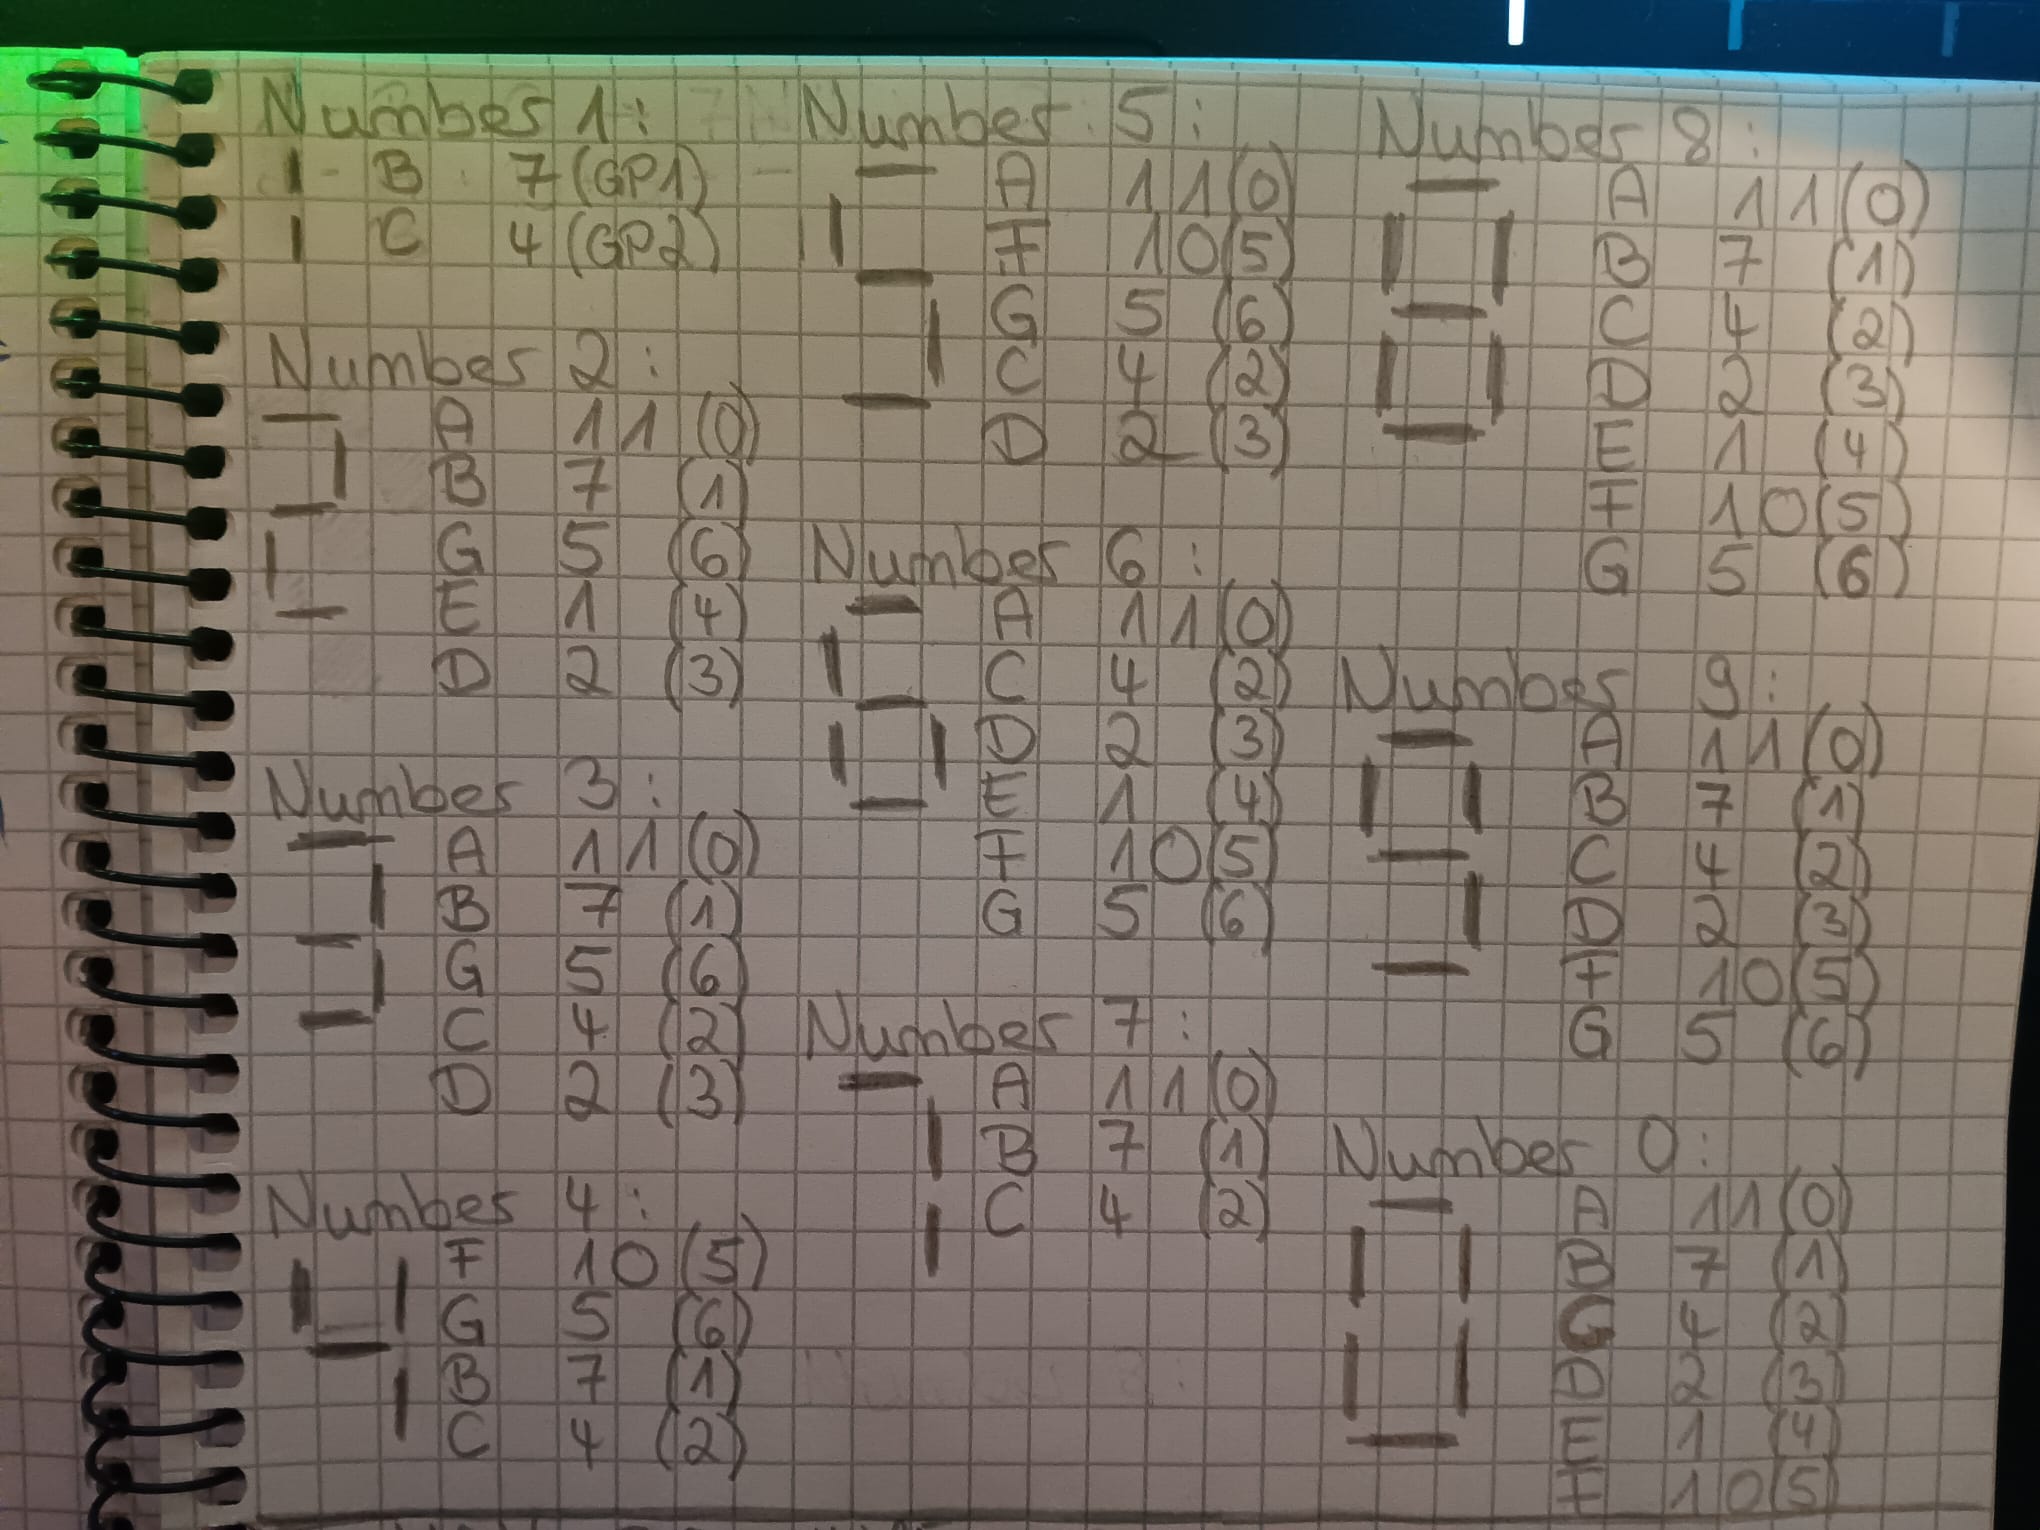 Number 1:
B 7 (GP1)
C 4 (GP2)
Number 2:
A 11 (0)
B 7 (1)
G 5 (6)
E 1 (4)
D 2 (3)
Number 3:
A 11 (0)
B 7 (1)
G 5 (6)
C 4 (2)
D 2 (3)
Number 4:
F 10 (5)
G 5 (6)
B 7 (1)
C 4 (2)
Number 5:
A 11 (0)
F 10 (5)
G 5 (6)
C 4 (2)
D 2 (3)
Number 6:
A 11 (0)
C 4 (2)
D 2 (3)
E 1 (4)
F 10 (5)
G 5 (6)
Number 7:
A 11 (0)
B 7 (1)
C 4 (2)
Number 8:
A 11 (0)
B 7 (1)
C 4 (2)
D 2 (3)
E 1 (4)
F 10 (5)
G 5 (6)
Number 9:
A 11 (0)
B 7 (1)
C 4 (2)
D 2 (3)
F 10 (5)
G 5 (6)
Number 0:
A 11 (0)
B 7 (1)
C 4 (2)
D 2 (3)
E 1 (4)
F 10 (5)